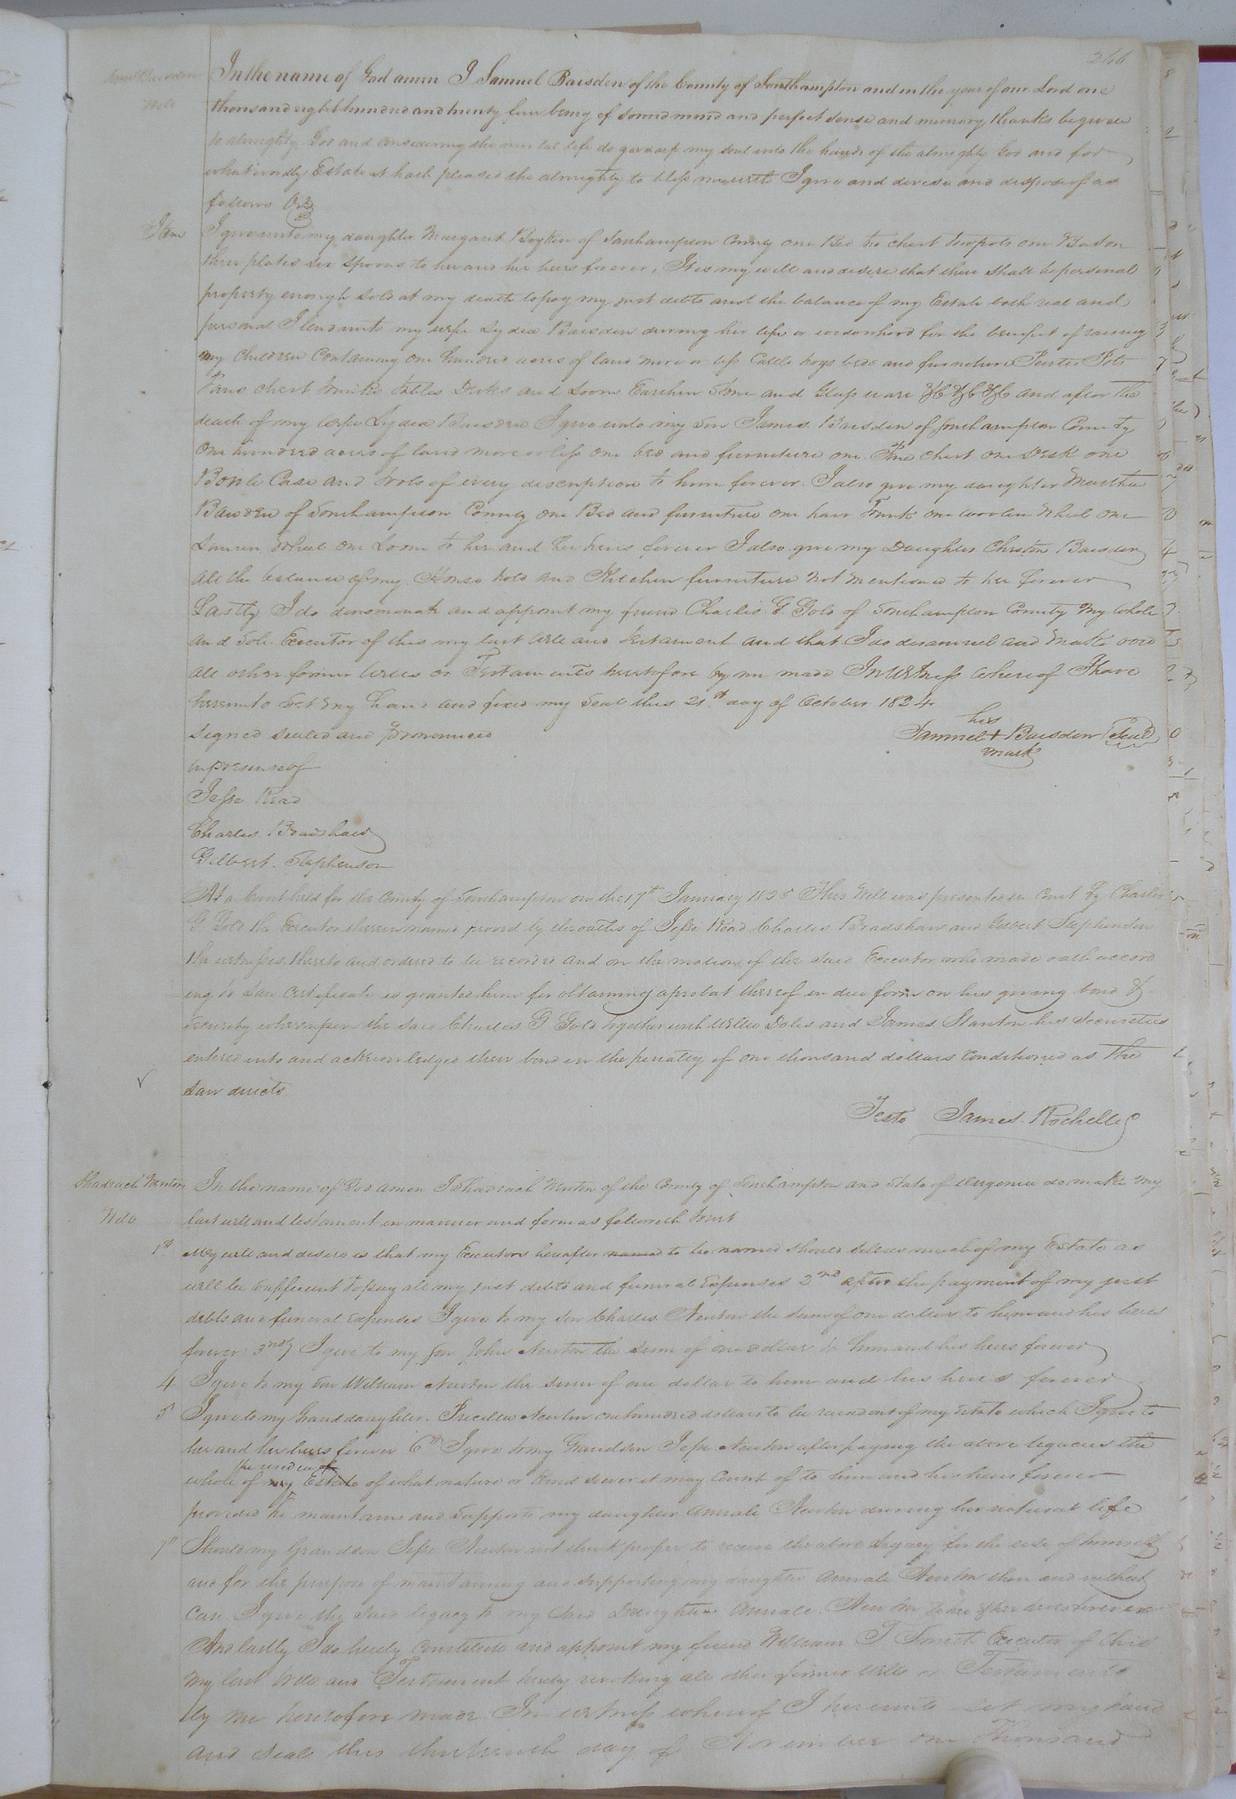 266
Saml Baisden
Will
In the name of God amen I Samuel Baisden of the County of Southampton and in the year of our Lord one
thousand eight hundred and twenty four being of sound mind and perfect sense and memory thanks be given
to almighty God and considering the mortal life do give up my soul into the hands of the almighty God and for
what worldly Estate it hath pleased the almighty to bless me with I give and devise and dispose of as
follows
Item I give unto my daughter Margaret Boykin of Southampton County one Bed tea chest two pots one Bason
three plates six spoons to her and her heirs forever, It is my will and desire that there shall be personal
property enough sold at my death to pay my just debts and the balance of my Estate both real and
personal I lend unto my wife Lydia Baisden during her life or widowhood for the benefit of raising
my children Containing one hundred acres of land more or less Cattle hogs beds and furniture Pewter Pots
Pans chest trunks Tables Desks and Loom Earthen Stone and Glass ware &C &C &C and after the
death of my wife Lydia Baisden I give unto my son James Baisden of Southampton County
one hundred acres of land more or less one bed and furniture one Pine chest one Desk one
Bottle Case and tools of every description to him forever I also give my daughter Martha
Baisden of Southampton County one Bed and furniture one hair Trunk one woolen Wheel one
Linnen Wheel one Loom to her and her heirs forever I also give my Daughter Christon Baisden
all the balance of my House hold and Kitchen furniture not mentioned to her forever
Lastly I do denominate and appoint my friend Charles G Gold of Southampton County my whole
and Sole Executor of this my last Will and testament and that I do disannul and make void
all other former Wills or Testaments heretofore by me made In Witness Whereof I have
hereunto set my hand and fixed my seal this 21st day of October 1824
Signed sealed and pronounced
in presence of
his
Samuel + Baisden (Seal)
mark
Jesse Read
Charles Bradshaw
Gilbert Stephenson
At a Court held for the County of Southampton on the 17th January 1825 This Will was presented in Court by Charles
G Gold the Executor therein named proved by the oaths of Jesse Read Charles Bradshaw and Gilbert Stephenson
the witnesses thereto and ordered to be recorded and on the motion of the said Executor who made oath accord
ing to law certificate is granted him for obtaining a probat thereof in due form on his giving bond &
security whereupon the said Charles G Gold together with Willie Doles and James Stanton his securities
entered into and acknowledged their bond in the penalty of one thousand dollars Conditioned as the
law directs
Teste James Rochelle
Shadrach Newton
Will
In the name of God amen I Shadrach Newton of the County of Southampton and State of Virginia do make my
last will and testament in manner and form as followeth First
1st My will and desire is that my Executors hereafter named to be named should sell as much of my Estate as
will be sufficient to pay all my just debts and funeral expenses 2nd after the payment of my just
debts and funeral expenses I give to my son Charles Newton the sum of one dollar to him and his heirs
forever 3rdly I give to my son John Newton the sum of one dollar to him and his heirs forever
4 I give to my son William Newton the sum of one dollar to him and his heirs forever
5 I give to my Grand daughter Priscilla Newton one hundred dollars to be raised out of my estate which I give to
her and her heirs forever 6th I give to my Grandson Jesse Newton after paying the above legacies the
the residue of
whole of my Estate of what nature or kind soever it may consist of to him and his heirs forever
provided he maintains and supports my daughter Annale Newton during her natural life
7th Should my Grandson Jesse Newton not think proper to receive the above Legacy for the use of himself
and for the purpose of maintaining and supporting my daughter Annale Newton then and in that
case I give the said legacy to my said Daughter Annale Newton
And lastly I do hereby constitute and appoint my friend William T Smith Executor of this
my last Will and Testament hereby revoking all other former Wills or Testaments
by me heretofore made In witness whereof I hereunto set my hand
and seal this thirteenth day of November one Thousand